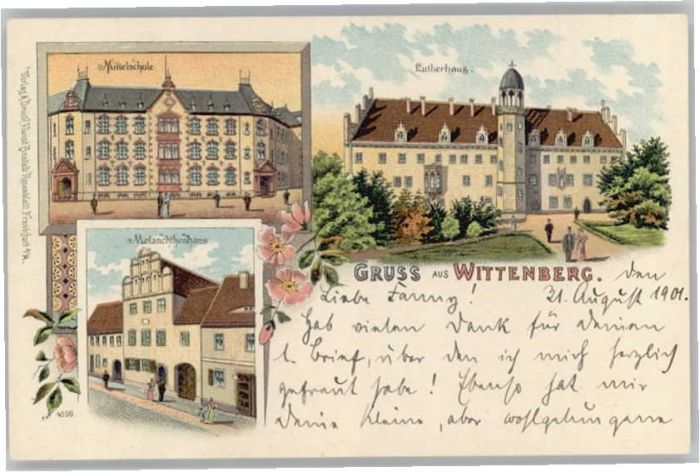 Mittelschule
Lutherhaus.
Melanchthonhaus
GRUSS AUS WITTENBERG.
den
Liebe Fanny! 31. August 1901.
Hab vielen Dank für deinen
l. Brief, über den ich mich herzlich
gefreut habe! Ebenso hat mir
deine kleine, aber wohlgelungene
Verlag & Druck Kunst Frankfurt a/M.
4098